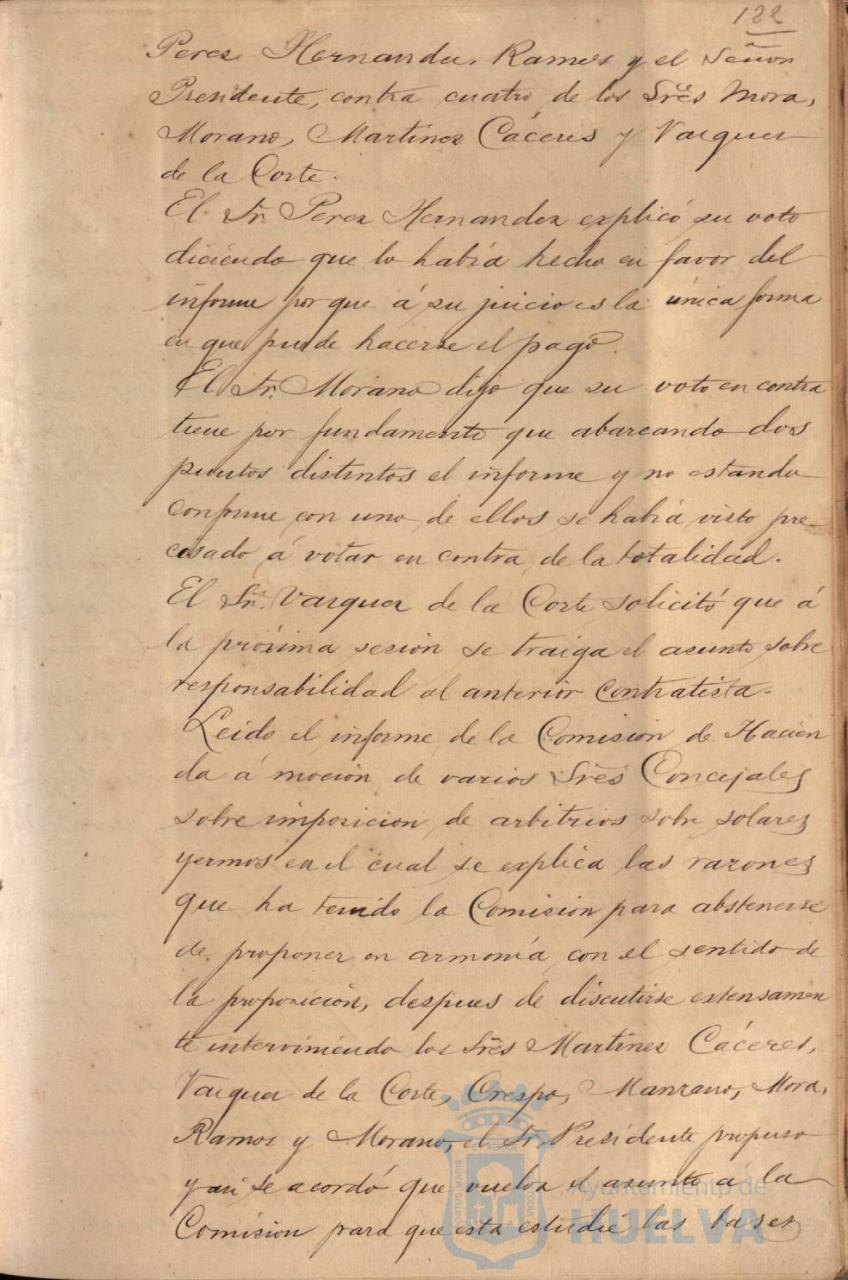 122
Perez Hernandez, Ramos y el Señor
Presidente, contra cuatro de los Sres Mora,
Morano, Martinez Cáceres y Vazquez
de la Corte.
El Sr. Perez Hernandez explicó su voto
diciendo que lo habia hecho en favor del
informe por que á su juicio es la única forma
en que puede hacerse el pago.
El Sr. Morano dijo que su voto en contra
tiene por fundamento que abarcando dos
puntos distintos el informe y no estando
conforme con uno de ellos se habia visto pre-
cisado á votar en contra de la totalidad.
El Sr. Vazquez de la Corte solicitó que á
la próxima sesión se traiga el asunto sobre
responsabilidad al anterior contratista.
Leido el informe de la Comisión de Hacien
da á moción de varios Sres Concejales
sobre imposicion de arbitrios sobre solares
yermos en el cual se explica las razones
que ha tenido la Comision para abstenerse
de proponer en armonía con el sentido de
la proposición, despues de discutirse extensamen
te interviniendo los Sres Martinez Cáceres,
Vazquez de la Corte, Crespo, Manzano, Mora,
Ramos y Morano, el Sr. Presidente propuso
y asi se acordó que vuelva el asunto á la
Comision para que esta estudie las bases
Ayuntamiento de
HUELVA